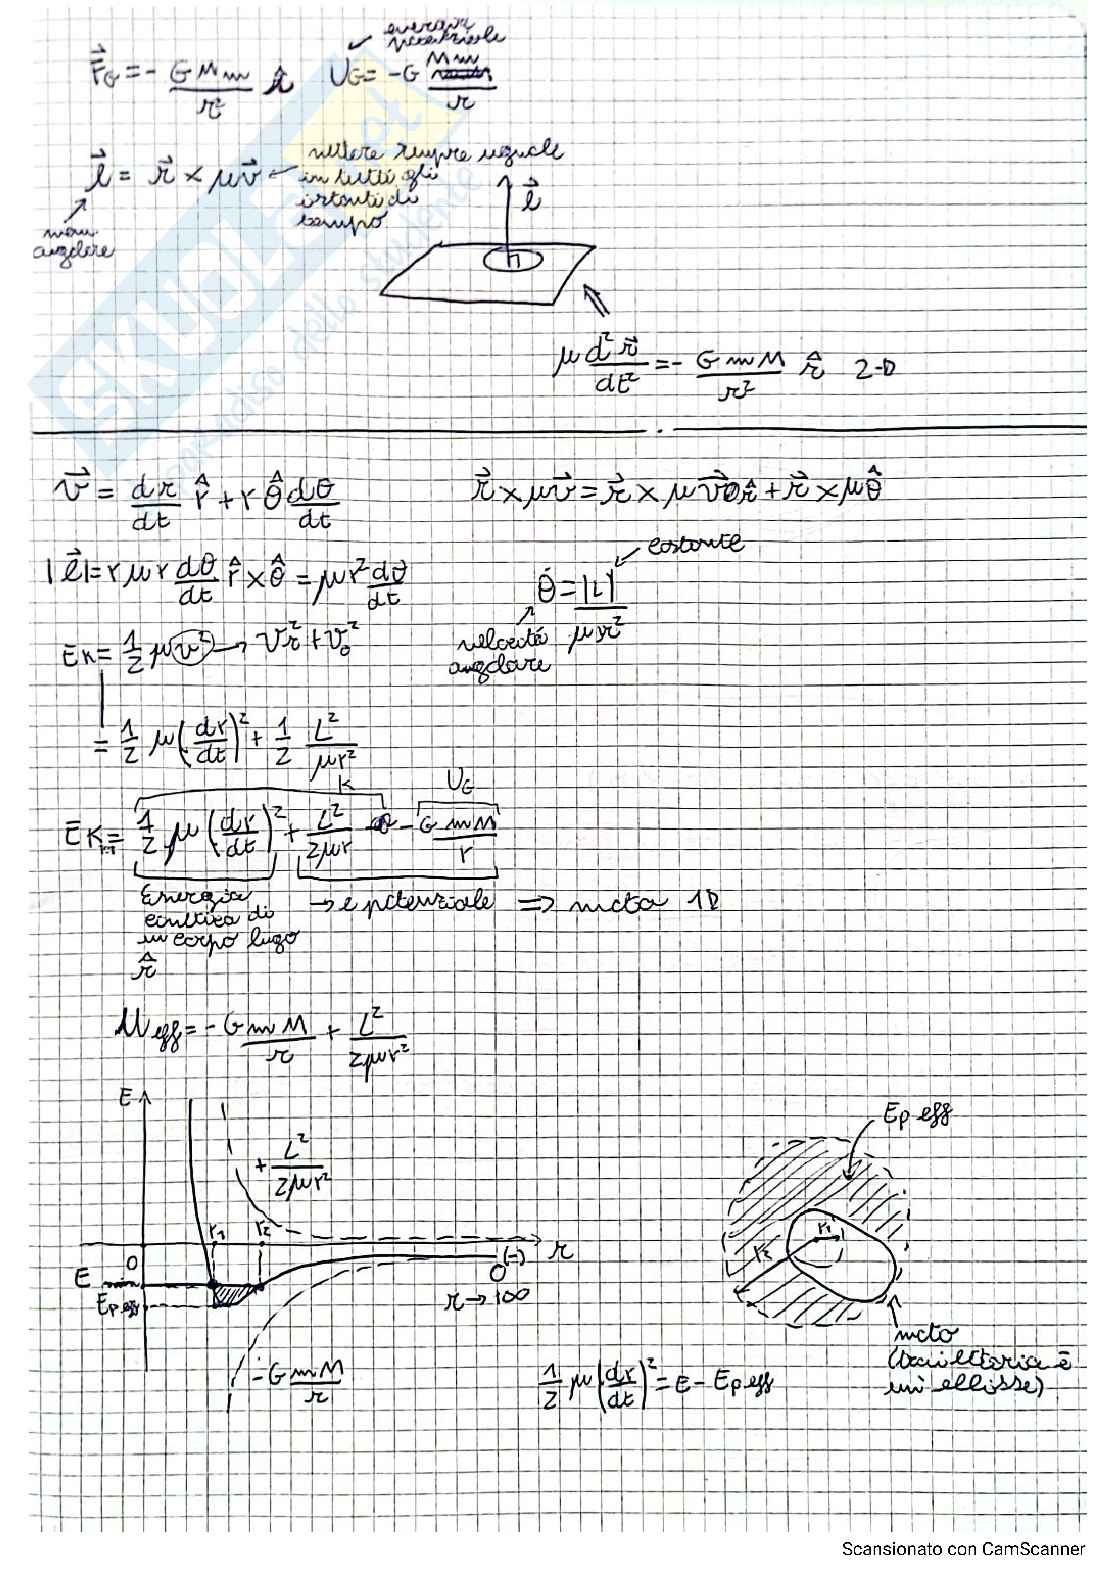 energia
potenziale
F⃗_G = - G M m / r² r̂   U_G = - G M m / r
l⃗ = r⃗ × μv⃗ ← vettore sempre uguale
in tutti gli
istanti di
tempo
mom
angolare
l⃗
μ d²r⃗/dt² = - G m M / r² r̂   2-D
v⃗ = dr/dt r̂ + r θ̂ dθ/dt   r⃗ × μv⃗ = r⃗ × μ v⃗ r̂ + r⃗ × μ θ̂
costante
|l⃗| = r μ r dθ/dt r̂ × θ̂ = μ r² dθ/dt   θ̇ = |L| / μr²
velocità
angolare
E_K = 1/2 μ v² → v_r² + v_θ²
= 1/2 μ (dr/dt)² + 1/2 L²/μr²
K   U_G
E_K = 1/2 μ (dr/dt)² + L²/2μr - G m M / r
Energia
cinetica di
un corpo lugo
r̂
→ e potenziale ⇒ moto 1D
U_eff = - G m M / r + L²/2μr²
E
+ L²/2μr²
r₁ r₂
0
r
E
E_p eff
0 (-)
r → 100
- G m M / r
1/2 μ (dr/dt)² = E - E_p eff
E_p eff
r₁
r₂
moto
(traiettoria è
un ellisse)
SKUOLA.net
dello studente
Scansionato con CamScanner